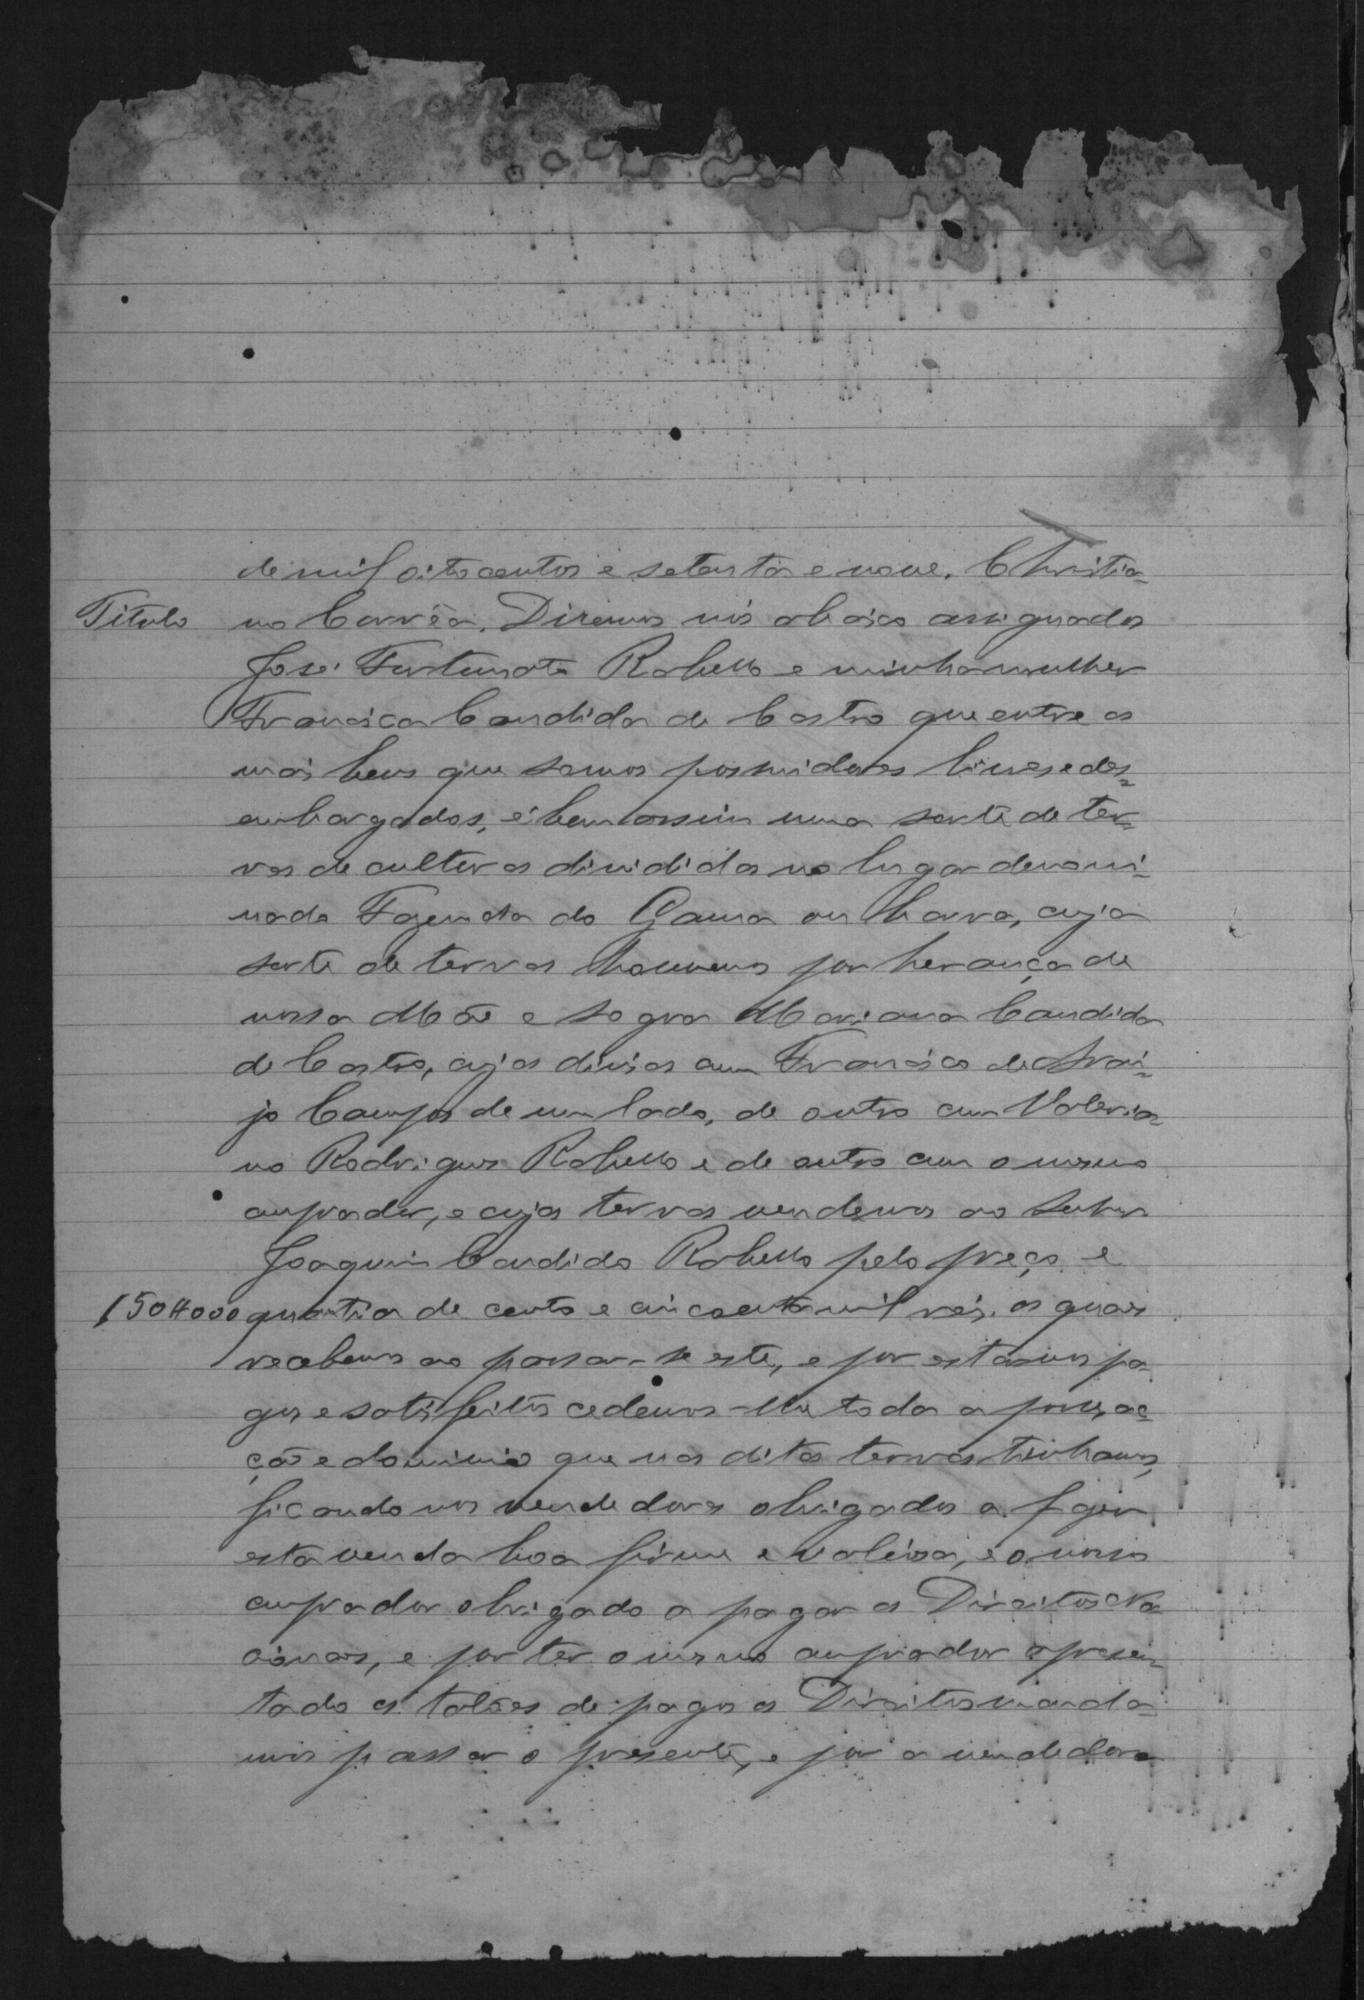 de mil oitocentos e setenta e nove. Christia-
Titulo no Corrêa. Dizemos nós abaixo assignados
José Fortunato Rabello e minha mulher
Francisca Candida de Castro que entre os
mais bens que somos possuidores livres e des-
embargados, é bem assim uma sorte de ter-
ras de culturas divididas no lugar denomi-
nado Fazenda do Gama ou Barra, cuja
sorte de terras houvemos por herança de
nossa Mãe e sogra Mariana Candida
de Castro, cujas divisas com Francisco de Arau-
jo Campos de um lado, de outro com Valeria-
no Rodrigues Rabello e de outro com o mesmo
comprador, e cujas terras vendemos ao Senhor
Joaquim Candido Rabello pelo preço e
150#000 quantia de cento e cincoenta mil reis, os quaes
recebemos ao passar-se este, e por estarmos pa-
gos e satisfeitos cedemos-lhe toda a
ção e dominio que nas ditas terras tinhamos,
ficando nos vendedores obrigados a fazer
esta venda boa firme e valiosa, e o nosso
comprador obrigado a pagar os Direitos Na-
cionaes, e por ter o mesmo comprador apresen-
tado os talões de pagos os Direitos manda-
mos passar o presente, e por a vendedora